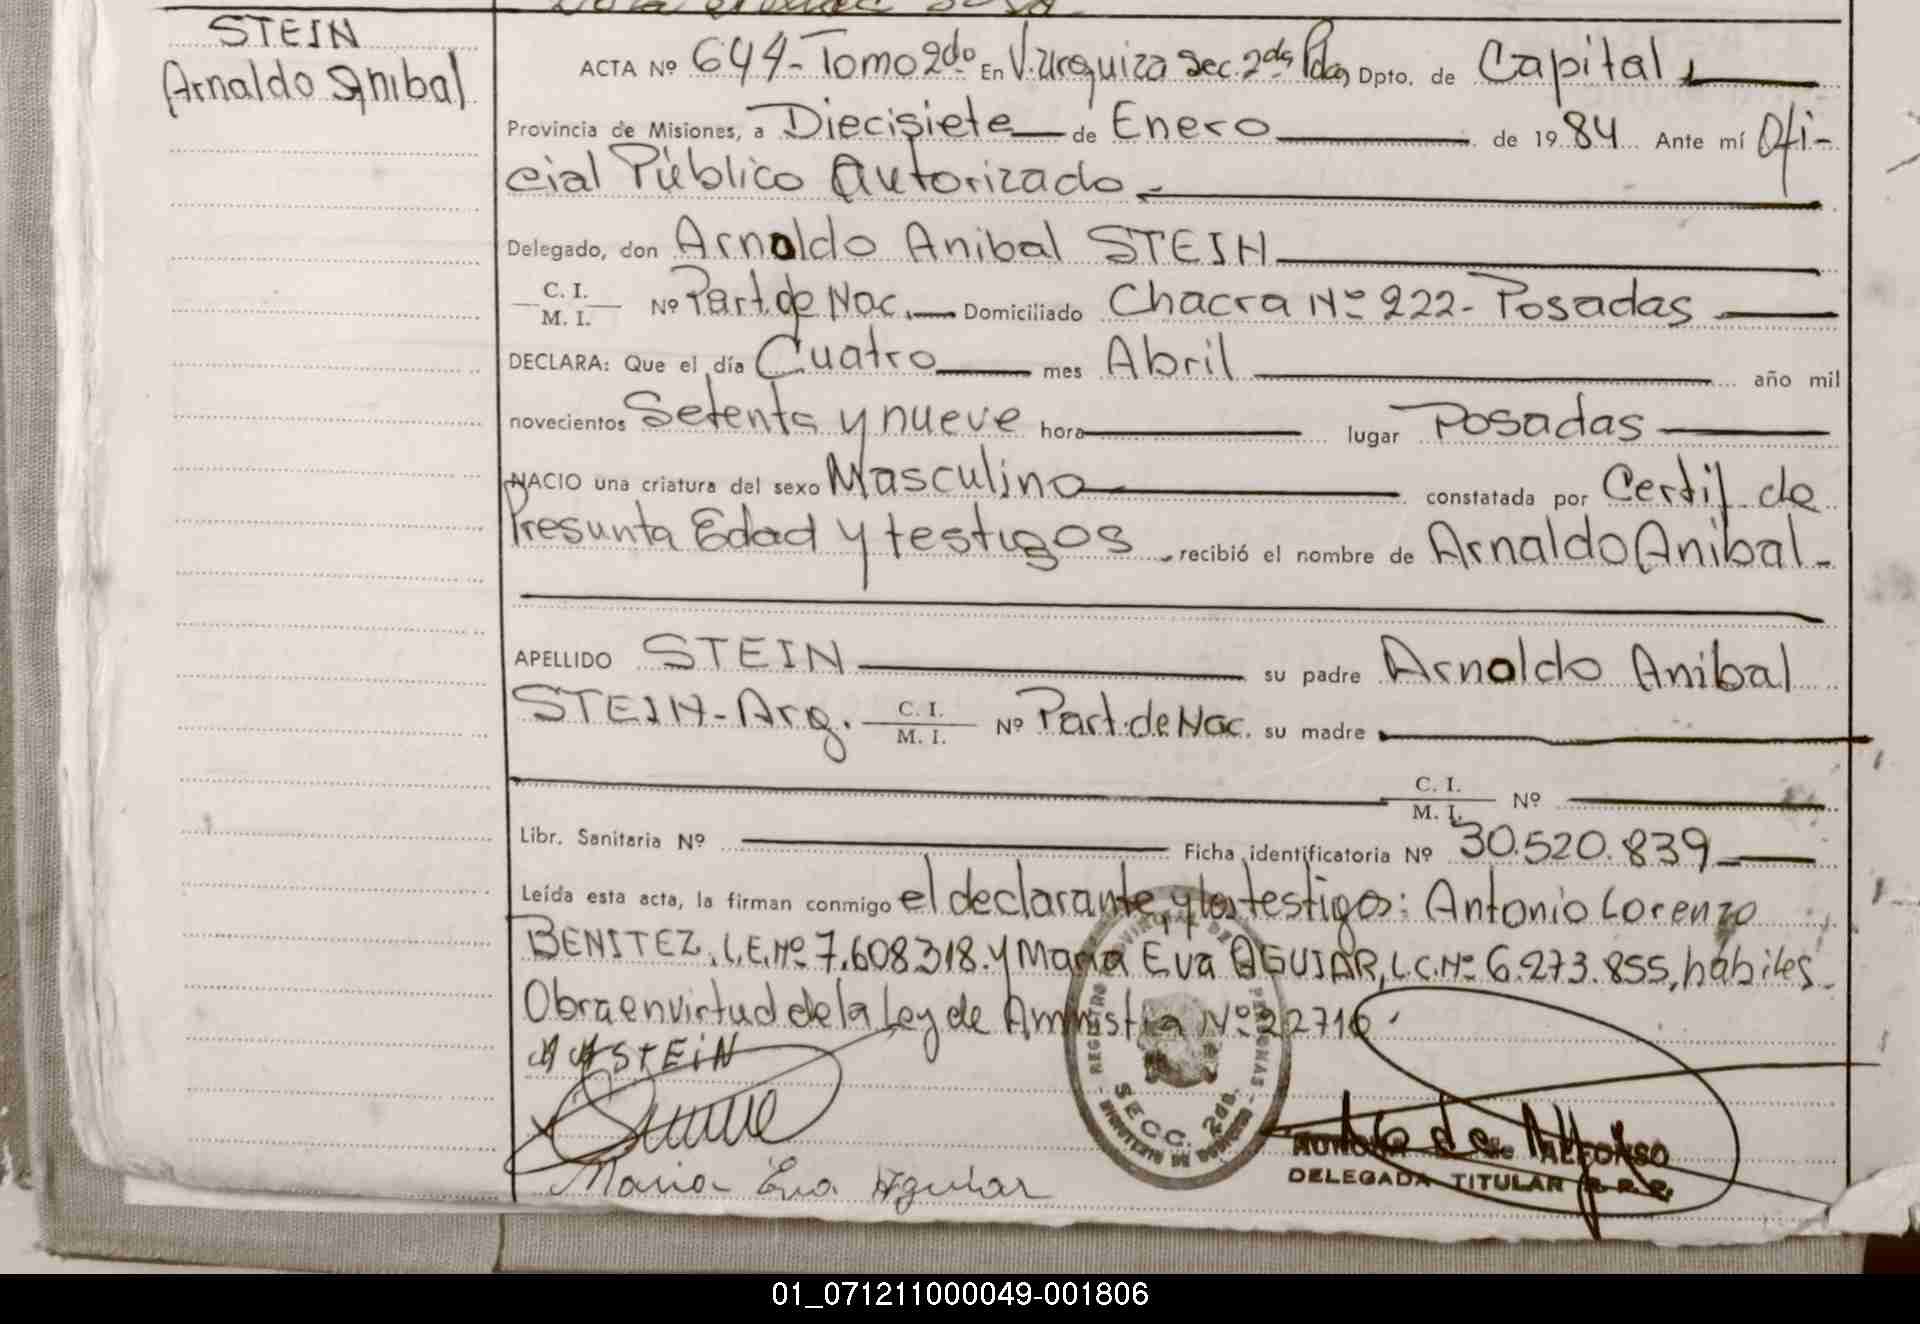 STEIN
Arnaldo Anibal
ACTA Nº 644-Tomo 2do En V. Urquiza Sec. 2da Pdas, Dpto. de Capital
Provincia de Misiones, a Diecisiete de Enero de 1984 Ante mí Ofi-
cial Público Autorizado.-
Delegado, don Arnaldo Anibal STEIN
C. I.
M. I.
Nº Part. de Nac. Domiciliado Chacra Nº 222- Posadas
DECLARA: Que el día Cuatro mes Abril año mil
novecientos Setenta y nueve hora lugar Posadas
NACIO una criatura del sexo Masculino constatada por Certif. de
Presunta Edad y testigos recibió el nombre de Arnaldo Anibal.-
APELLIDO STEIN su padre Arnaldo Anibal
STEIN-Arg. C. I.
M. I.
Nº Part. de Nac. su madre
C. I.
M. I.
Nº
Libr. Sanitaria Nº Ficha identificatoria Nº 30.520.839
Leída esta acta, la firman conmigo el declarante y los testigos: Antonio Lorenzo
BENITEZ, L.E. Nº 7.608.318. y María Eva AGUIAR, L.C. Nº 6.273.855, hábiles.
Obra en virtud de la Ley de Amnistía Nº 22716.
A A STEIN
Maria Eva Aguiar
REGISTRO PROVINCIAL DE LAS PERSONAS
SECC. 2da.
AURORA de ALFONSO
DELEGADA TITULAR R. P. P.
01_071211000049-001806